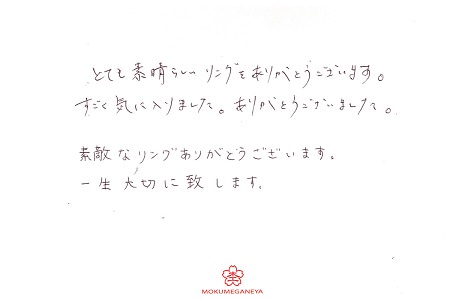 とても素晴らしいリングをありがとうございます。
すごく気に入りました。ありがとうございました。
素敵なリングありがとうございます。
一生大切に致します。
MOKUMEGANEYA